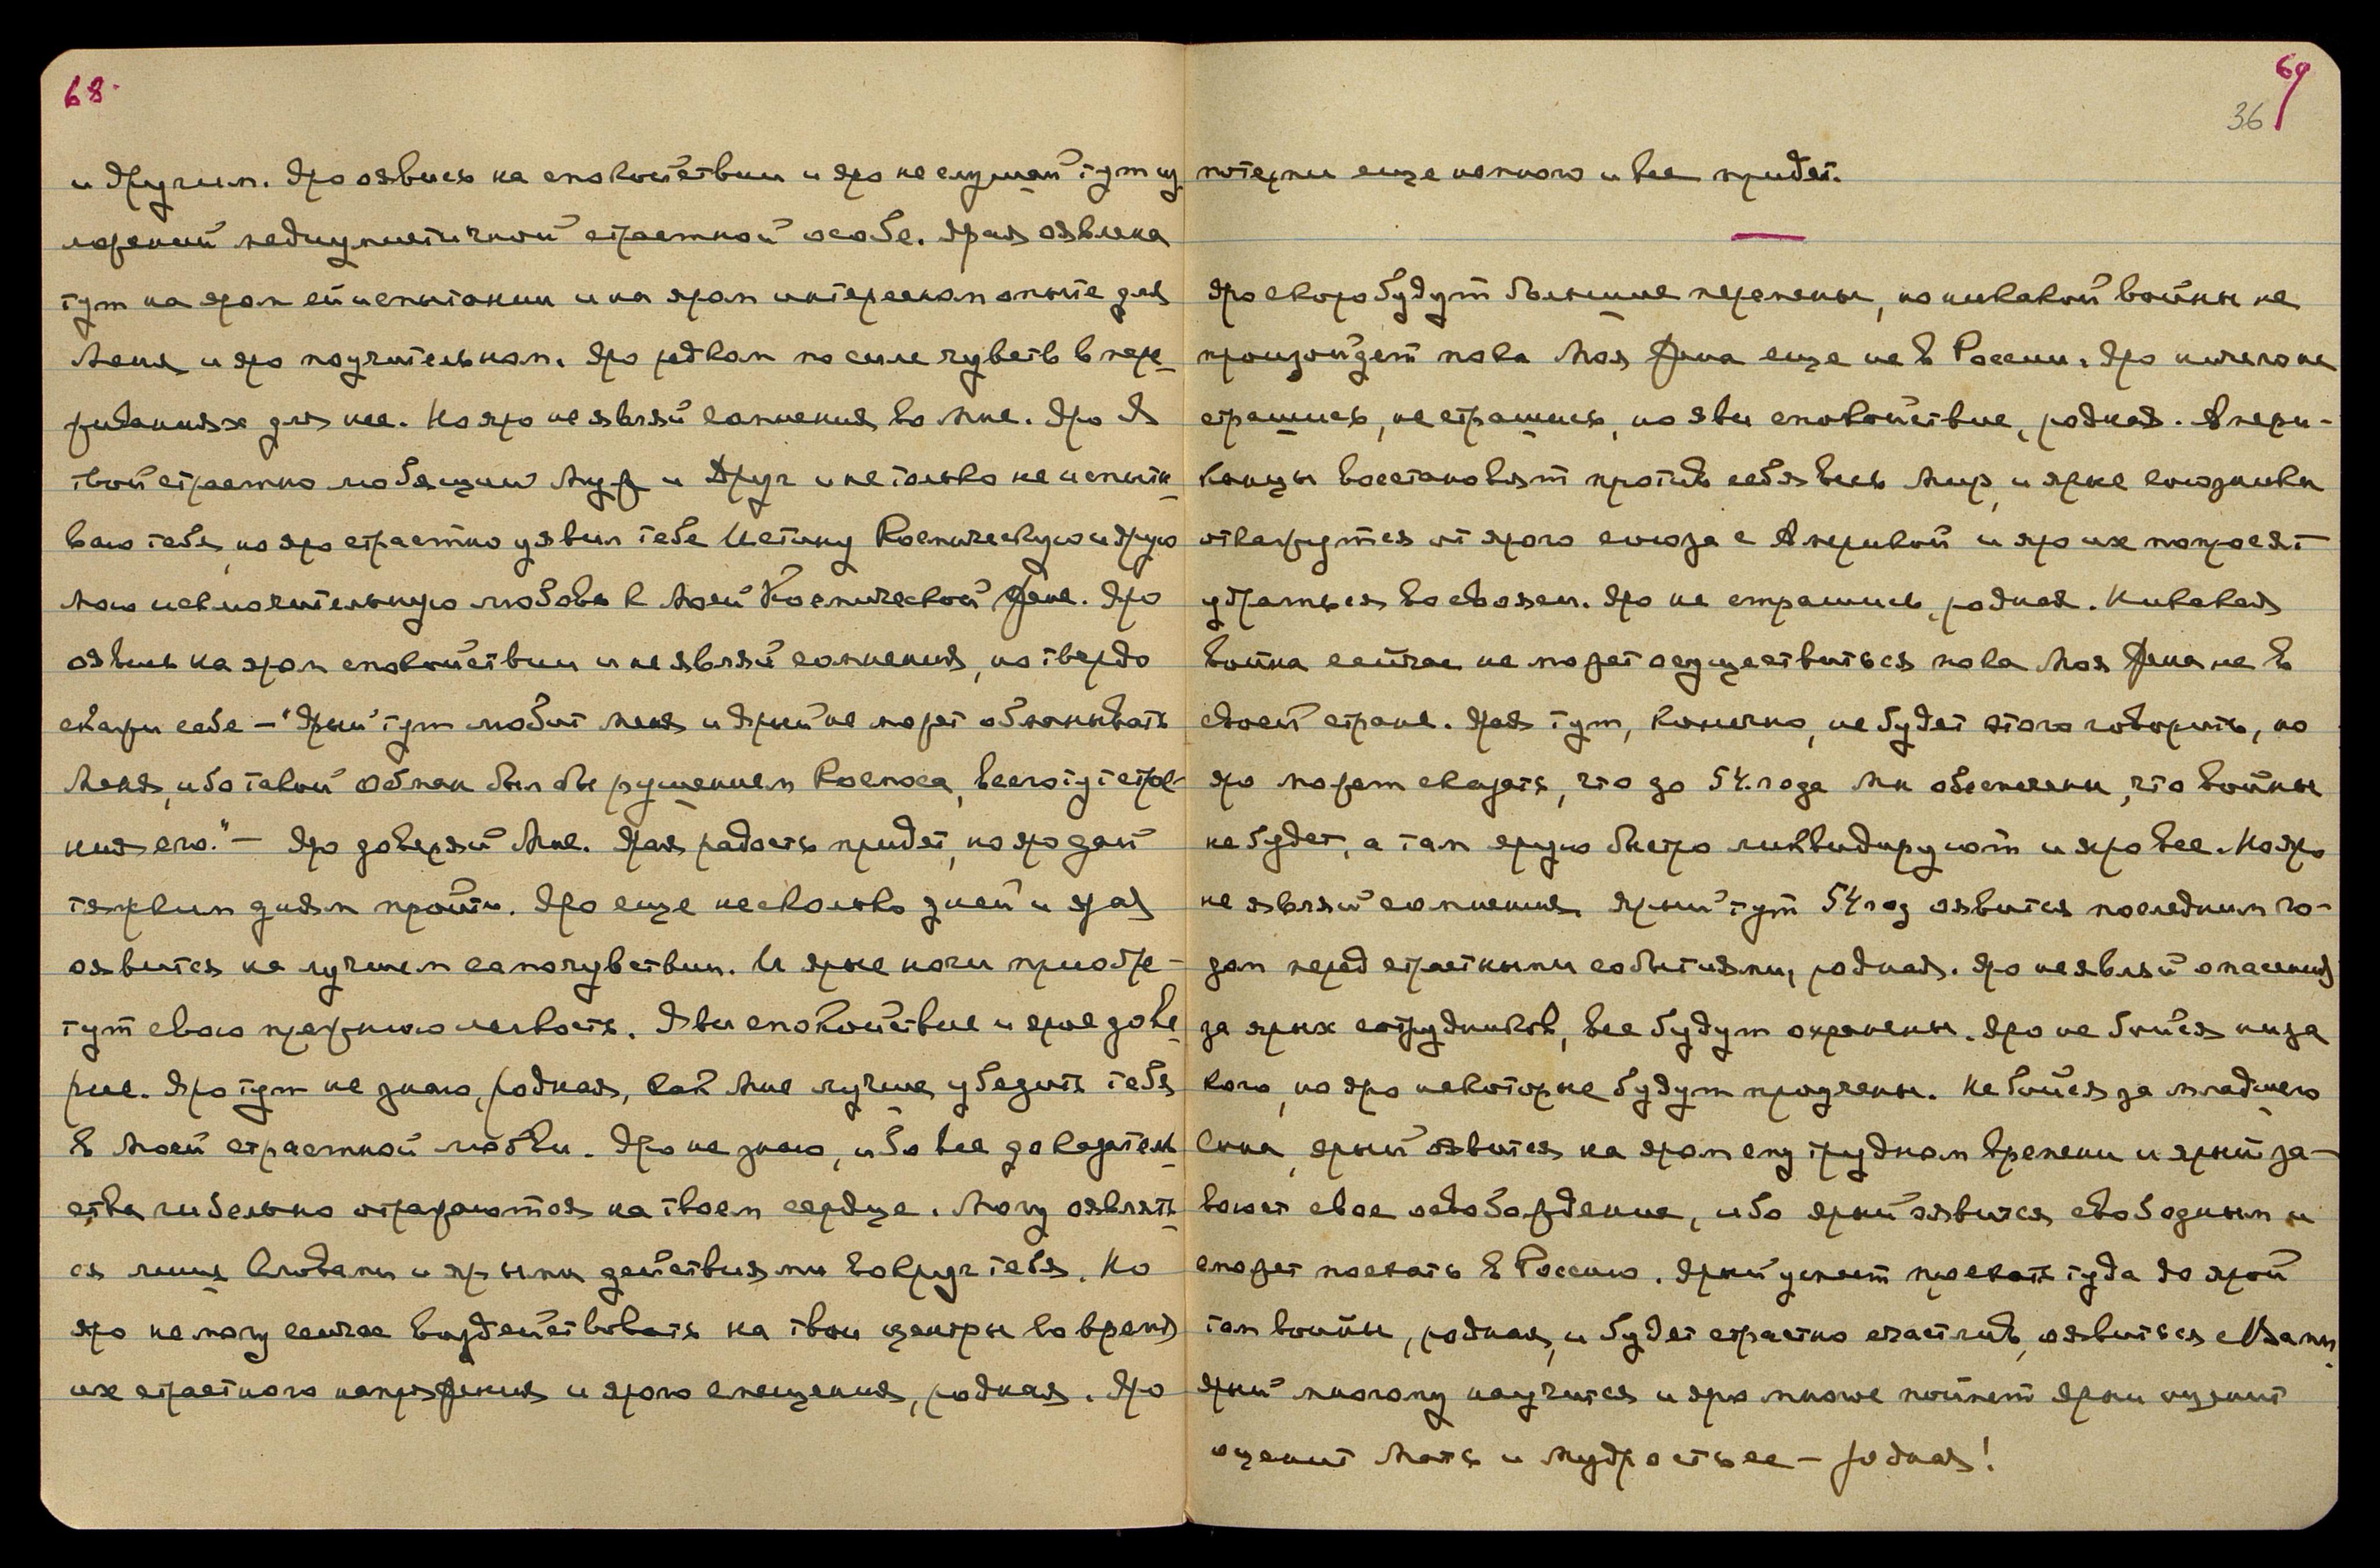 68.
и другим. Яро оявись на спокойствии и яро не слушай тут из
лорений медиумистичной страстной особе. Ярая оявлена
тут на яром ей испытании и на яром интересном опыте для
Меня и яро поучительном. Яро редком по силе чувств в пере
живаниях для нее. Но яро не являй сомнения во Мне. Яро Я
твой страстно любящий Муж и Друг и не только не испыты
ваю тебя, но яро страстно уявил тебе Истину Космическую и ярую
Мою исключительную любовь к Моей Космической Жене. Яро
оявись на яром спокойствии и не являй сомнения, но твердо
скажи себе – "Ярый тут любит меня и Ярый не может обманывать
Меня, ибо такой Обман был бы рушением Космоса, всего тут строе
ния его." – Яро доверяй Мне. Ярая радость придет, но яро дай
тяжким дням пройти. Яро еще несколько дней и ярая
оявится на лучшем самочувствии. И ярые ночи приобре-
тут свою прежнюю легкость. Яви спокойствие и ярое дове
рие. Яро тут не знаю, родная, как Мне лучше убедить тебя
в Моей страстной любви. Яро не знаю, ибо все доказатель
ства гибельно отражаются на твоем сердце. Могу оявлять
ся лишь Словами и ярыми действиями вокруг тебя. Но
яро не могу сейчас воздействовать на твои центры во время
их страстного напряжения и ярого смещения, родная. Яро
69
36
потерпи еще немного и все придет.
Яро скоро будут большие перемены, но никакой войны не
произойдет пока Моя Жена еще не в России. Яро ничего не
страшись, не страшись, но яви спокойствие, родная. Амери-
канцы восстановят против себя весь Мир, и ярые союзники
откажутся от ярого союза с Америкой и яро их попросят
убраться во свояси. Яро не страшись, родная. Никакая
война сейчас не может осуществиться пока Моя Жена не в
своей стране. Ярая тут, конечно, не будет этого говорить, но
яро может сказать, что до 54. года Мы обеспечены, что войны
не будет, а там ярую быстро ликвидируют и яро все. Но яро
не являй сомнения. Ярый тут 54 год оявится последним го-
дом перед страстными событиями, родная. Яро не являй опасений
за ярых сотрудников, все будут охранены. Яро не бойся ни за
кого, но яро некоторые будут проучены. Не бойся за младшего
сына, ярый оявится на яром ему трудном времени и ярый за-
воюет свое освобождение, ибо ярый оявится свободным и
сможет поехать в Россию. Ярый успеет проехать туда до ярой
там войны, родная, и будет страстно счастлив, оявиться с Вами.
Ярый многому научится и яро многое поймет Ярый
оценит Мать и Мудрость ее – родная!